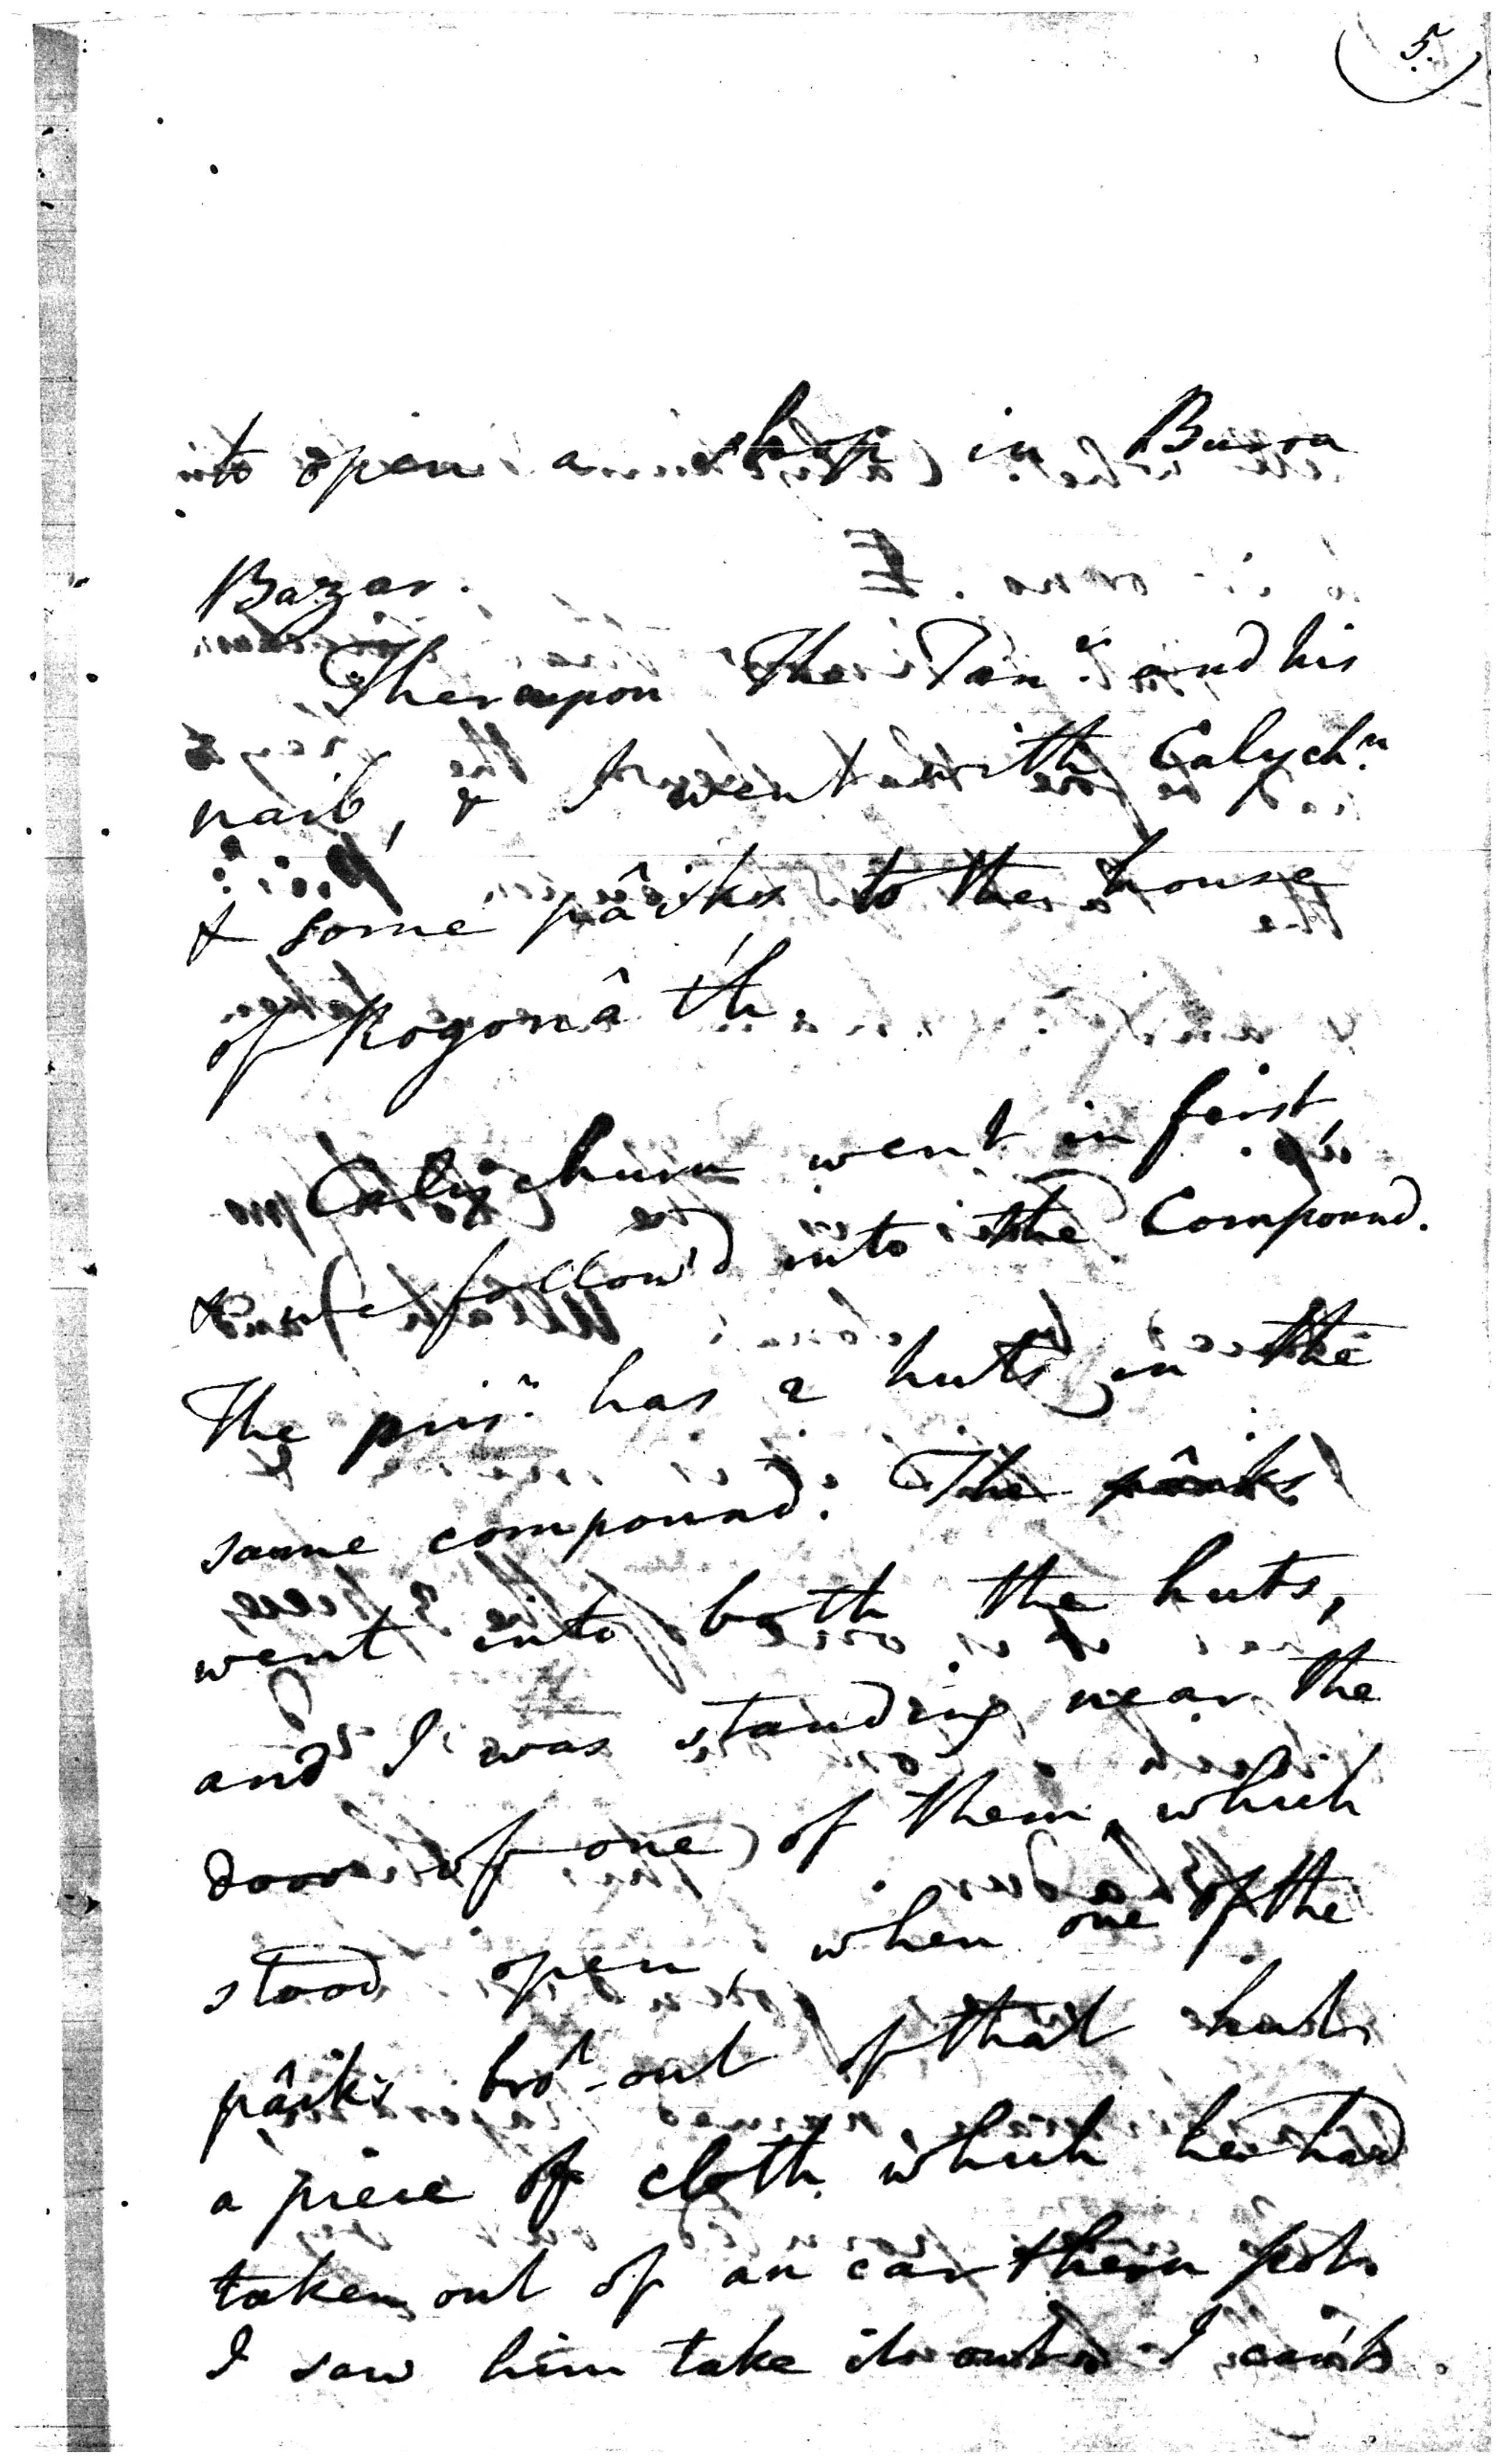 5.
to open a shop in Burra
Bazar.
Thereupon The Tanr. and his
naib, & I went with Calychn.
& some pâiks to the house
of Rogonâ'th.
Calychurn went in first,
& we follow'd into the Compound.
The prisr. has 2 huts in the
same compound. The pâiks
went into both the huts,
and I was standing near the
door of one of them, which
stood open, when one of the
pâiks brot. out of that hut
a piece of cloth which he had
taken out of an earthern pot.
I saw him take it out